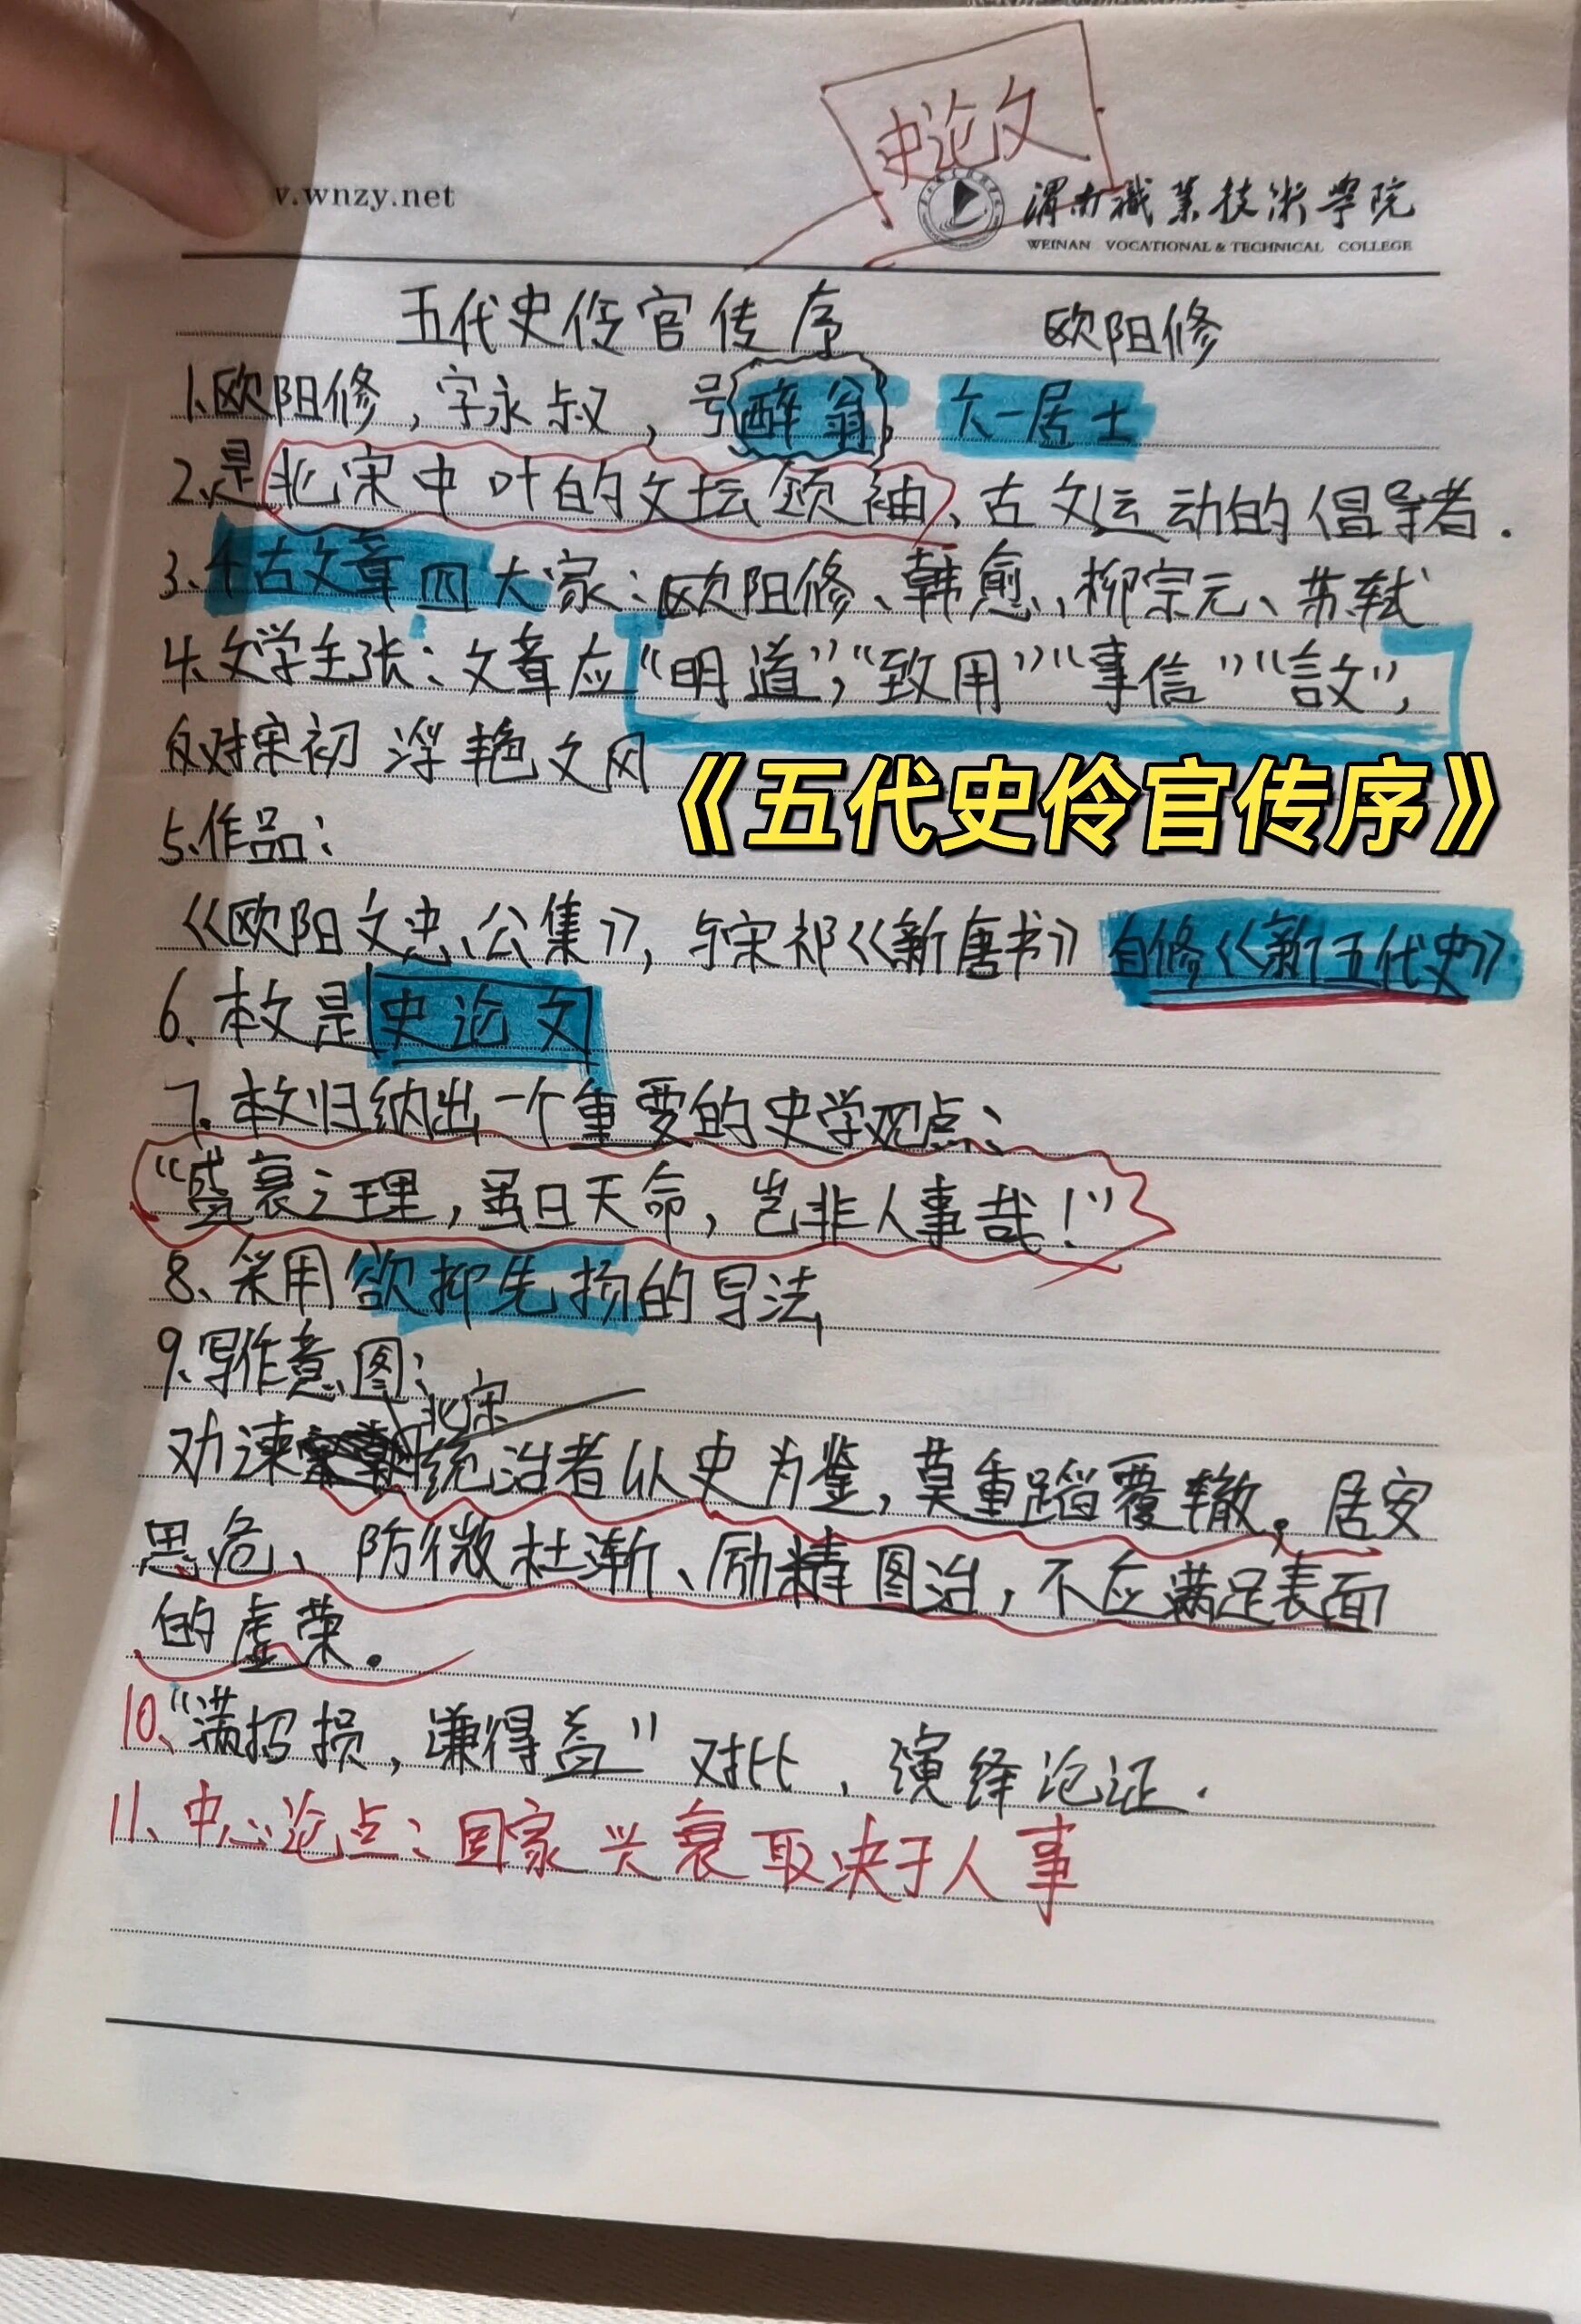 史论文
v.wnzy.net
渭南职业技术学院
WEINAN VOCATIONAL & TECHNICAL COLLEGE
五代史伶官传序 欧阳修
1、欧阳修,字永叔,号醉翁,六一居士
2、是北宋中叶的文坛领袖、古文运动的倡导者.
3、千古文章四大家:欧阳修、韩愈、柳宗元、苏轼
4、文学主张:文章应“明道”,“致用”“事信”“言文”,
反对宋初浮艳文风
《五代史伶官传序》
5、作品:
《欧阳文忠公集》,与宋祁《新唐书》自修《新五代史》
6、本文是史论文
7、本文归纳出一个重要的史学观点:
“盛衰之理,虽曰天命,岂非人事哉!”
8、采用欲抑先扬的写法
9、写作意图:
北宋
劝谏统治者以史为鉴,莫重蹈覆辙。居安
思危、防微杜渐、励精图治,不应满足表面
的虚荣。
10、“满招损,谦得益”对比,演绎论证.
11、中心论点:国家兴衰取决于人事